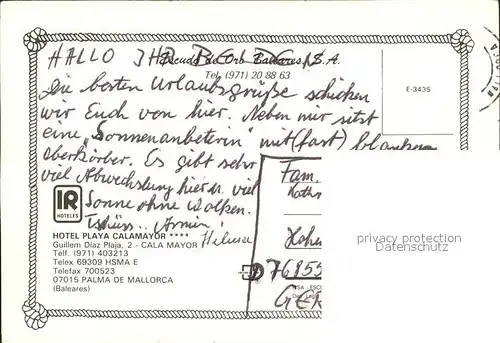 HALLO IHR
Tel. (971) 20 88 63
Die besten Urlaubsgrüße schicken
wir Euch von hier. Neben mir sitzt
E-3435
eine "Sonnenanbeterin" mit (fast) blankem
Oberkörper. Es gibt sehr
viel Abwechslung hier u. viel
Sonne ohne Wolken.
Tschüss..
Fam.
IR
HOTELES
HOTEL PLAYA CALAMAYOR ****
Guillem Díaz Plaja, 2 - CALA MAYOR
Telf. (971) 403213
Telex 69309 HSMA E
Telefax 700523
07015 PALMA DE MALLORCA
(Baleares)
privacy protection
Datenschutz
D 76855
GER